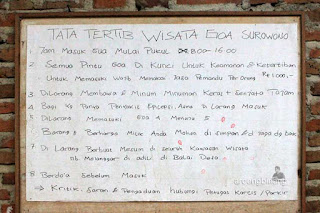 TATA TERTIB WISATA GOA SUROWONO
1 Jam Masuk Goa Mulai Pukul 08.00-16.00
2. Semua Pintu Goa Di Kunci Untuk Keamanan & Kebersihan
Untuk Memasuki Wajib Memakai Jasa Pemandu Per orang Rp 1.000,-
3 Dilarang Membawa & Minum Minuman Keras + Senjata Tajam
4 Bagi Yg Punya Penyakit Epilepsi, Asma Di Larang Masuk
5 Dilarang Memasuki Goa 4 Menuju 5
6 Barang & Berharga Milik Anda Mohon di Simpan
7 Di Larang Berbuat Mesum di Seluruh Kawasan Wisata
Yg Melanggar di adili di Balai Desa
8 Berdo'a Sebelum Masuk
⇒ Kritik, Saran & Pengaduan hubungi Petugas Karcis/Parkir